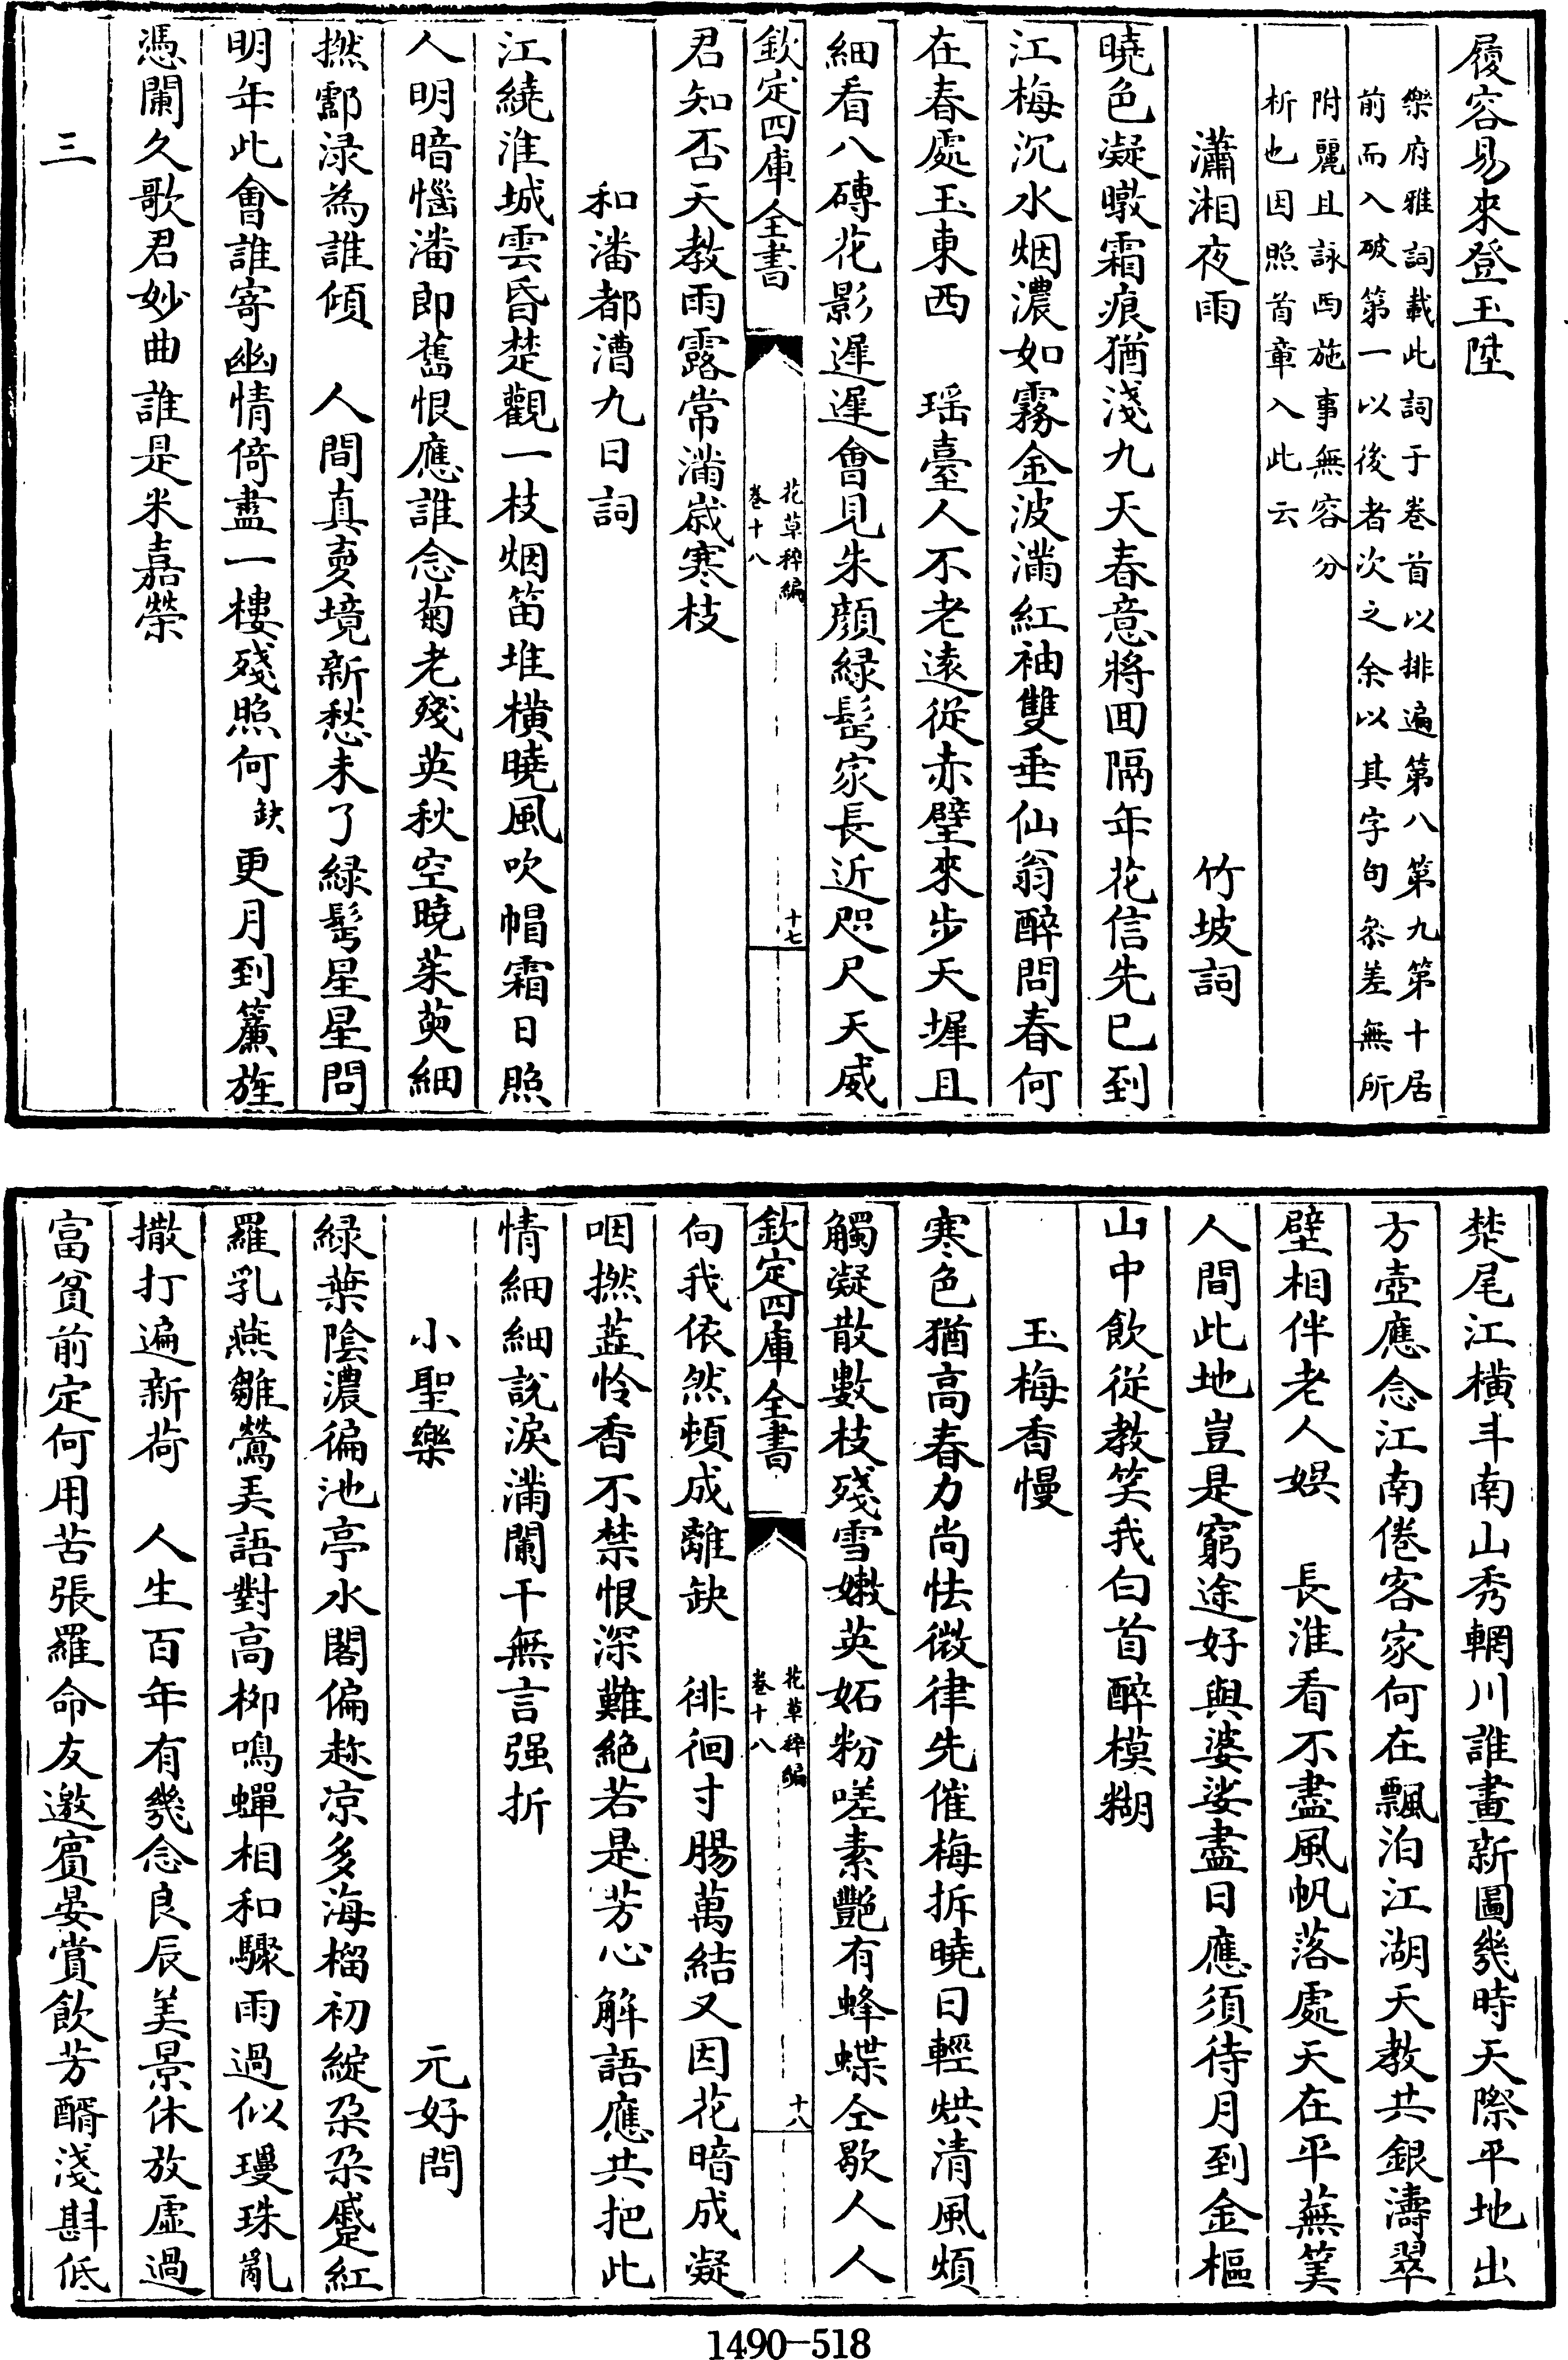 履容易來登玉陛
樂府雅詞載此詞于卷首以排遍第八第九第十居
前而入破第一以後者次之余以其字句叅差無所
附麗且詠西施事無容分
析也因照首章入此云
瀟湘夜雨　竹坡詞
曉色凝暾霜痕猶淺九天春意將回隔年花信先已到
江梅沉水烟濃如霧金波滿紅袖雙垂仙翁醉問春何
在春處玉東西　瑶臺人不老遠從赤壁來步天墀且
細看八磚花影遲遲會見朱顔緑髩家長近咫尺天威
欽定四庫全書
花草稡編
卷十八
十七
君知否天教雨露常滿嵗寒枝
和潘都漕九日詞
江繞淮城雲昏楚觀一枝烟笛堆横曉風吹帽霜日照
人明暗惱潘郎舊恨應誰念菊老殘英秋空曉茱萸細
撚酃渌為誰傾　人間真夐境新愁未了緑髩星星問
明年此會誰寄幽情倚盡一樓殘照何缺更月到簾旌
憑闌久歌君妙曲誰是米嘉榮
三
楚尾江横斗南山秀輞川誰畫新圖幾時天際平地出
方壺應念江南倦客家何在飄泊江湖天教共銀濤翠
壁相伴老人娯　長淮看不盡風帆落處天在平蕪筭
人間此地豈是窮途好與婆娑盡日應須待月到金樞
山中飲從教笑我白首醉模糊
玉梅香慢
寒色猶高春力尚怯微律先催梅拆曉日輕烘清風煩
觸凝散數枝殘雪嫩英妬粉嗟素艷有蜂蝶仝歇人人
欽定四庫全書
花草稡編
卷十八
十八
向我依然頓成離缺　徘徊寸腸萬結又因花暗成凝
咽撚蕋怜香不禁恨深難絶若是芳心解語應共把此
情細細説淚滿闌干無言强折
小聖樂　元好問
緑葉陰濃徧池亭水閣偏趂凉多海榴初綻朶朶蹙紅
羅乳燕雛鶯弄語對高栁鳴蟬相和驟雨過似瓊珠亂
撒打遍新荷　人生百年有幾念良辰美景休放虚過
富貧前定何用苦張羅命友邀賓宴賞飲芳醑淺斟低
1490-518